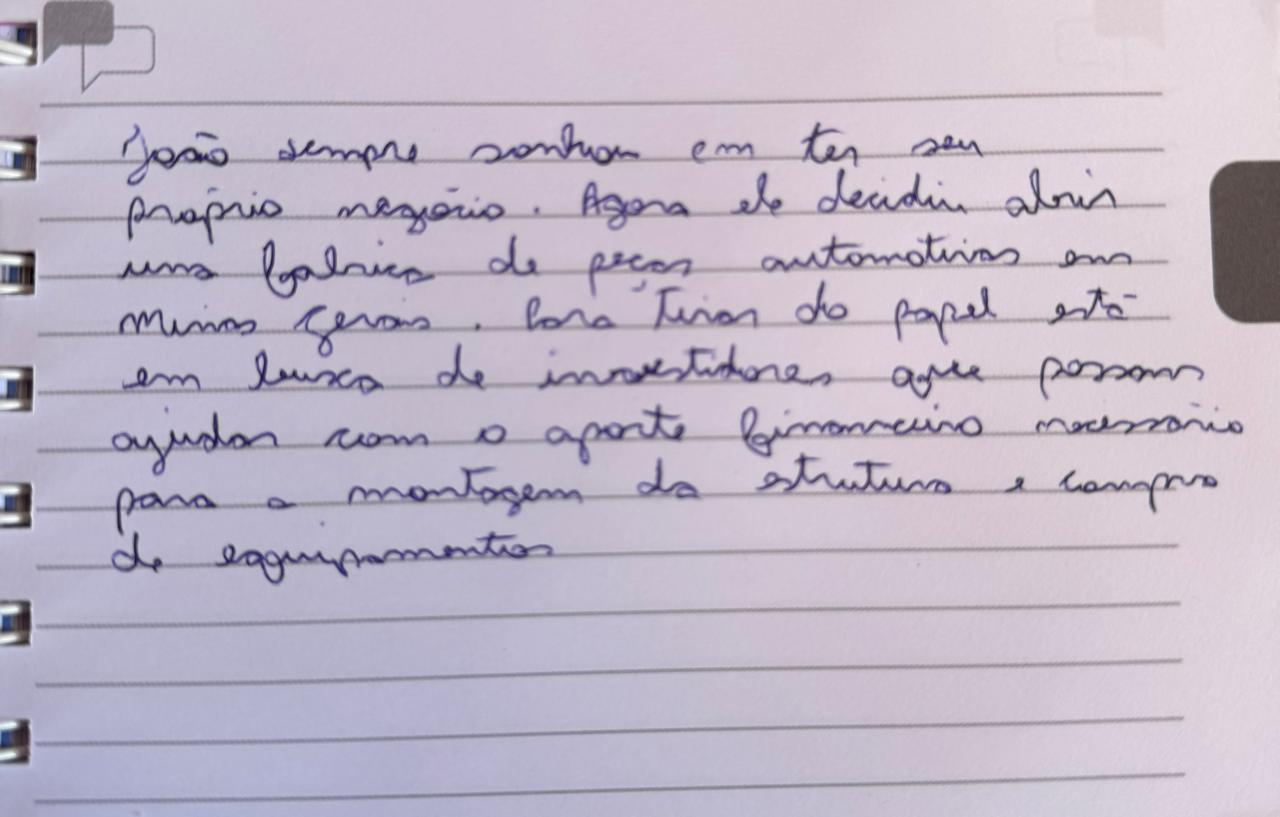 João sempre sonhou em ter seu
próprio negócio. Agora ele decidiu abrir
uma fabrica de peças automotivas em
Minas Gerais. Para tirar do papel está
em busca de investidores que possam
ajudar com o aporte financeiro necessário
para a montagem da estrutura e compra
de equipamentos